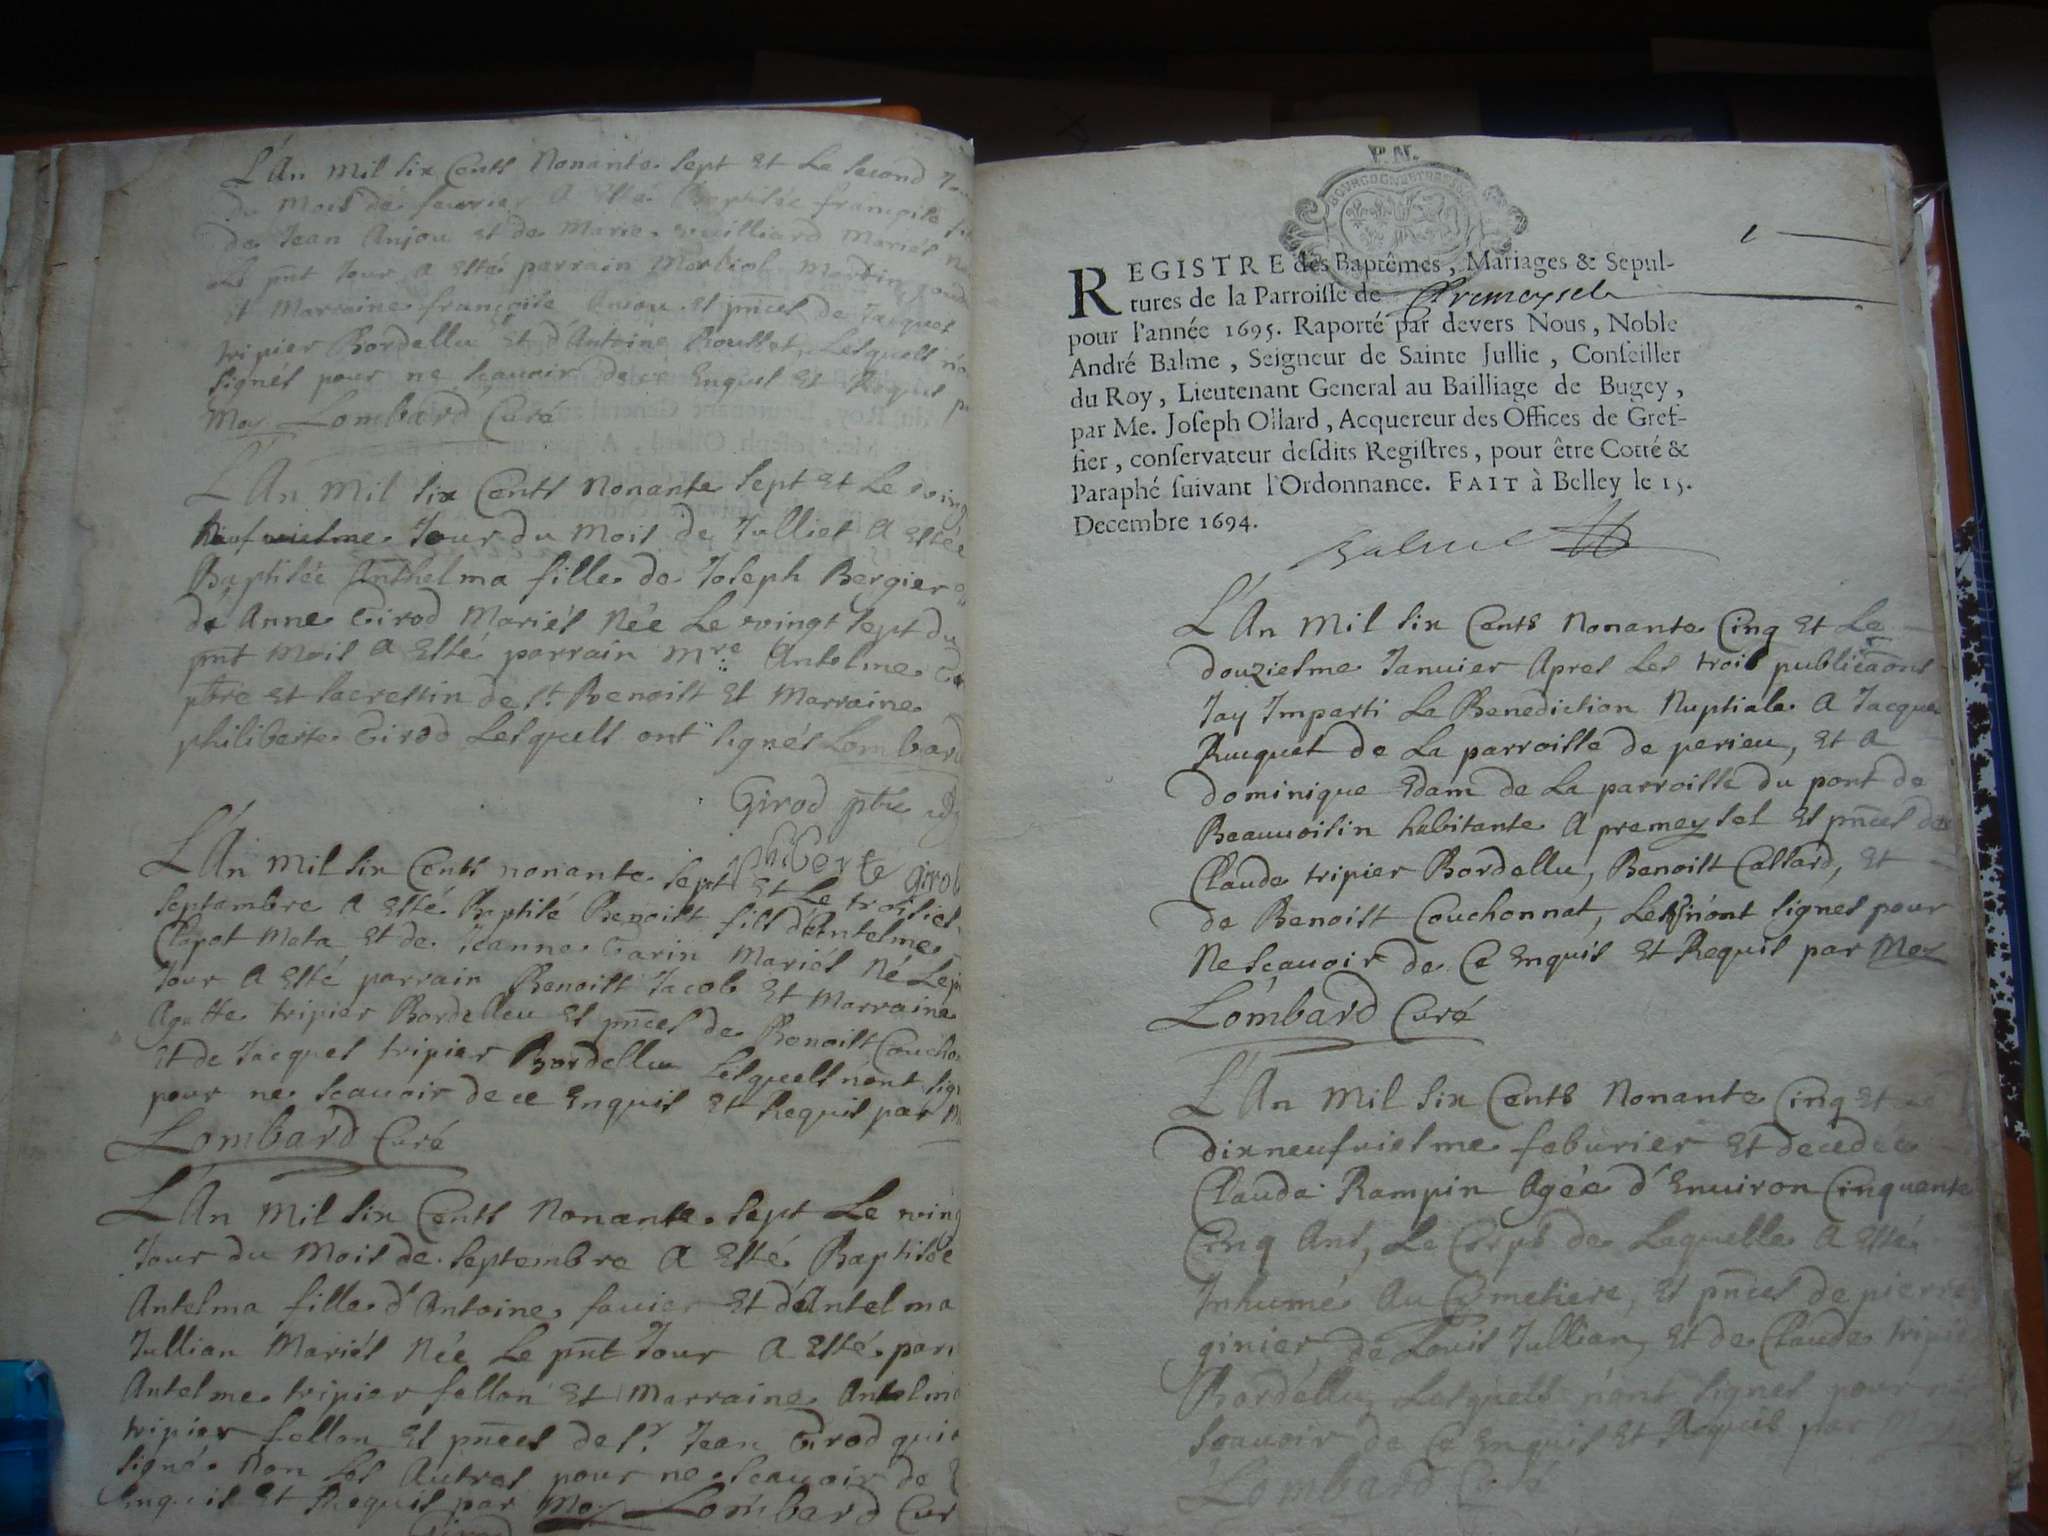 L'An Mil six Cents Nonante sept et Le second
du Mois de feurier A Esté Baptisée françoise
de Jean Anjou et de Marie Mariés
Le pñt Jour A Esté parrain Martin
et Marraine françoise Anjou et pñces de Jacques
tripier Bordellu et d'Antoine Roullet, Lesquells
signés pour ne sçauoir de ce Enquis et Requis
Moy Lombard Curé
L'An Mil six Cents Nonante sept et Le
Neufuiesme Jour du Mois de Julliet A Estée
Baptisée Anthelma fille de Joseph Bergier
de Anne Girod Mariés Née Le vingt sept du
pñt Mois A Esté parrain Mre Antelme
pbre et sacrestin de st Benoist et Marraine
philiberte Girod Lesquells ont signés Lombard
Girod pbre
philiberte girod
L'An Mil six Cents nonante sept et Le troisies
septambre A Esté Baptisé Benoist fils d'Antelme
Clapot Mata et de Jeanne Garin Mariés Né Le
Jour A Esté parrain Benoist Jacob et Marraine
Agatte tripier Bordelleu et pñces de Benoist
et de Jacques tripier Bordellu Lesquells n'ont
pour ne scauoir de ce Enquis et Requis par
Lombard Curé
L'An Mil six Cents Nonante sept Le
Jour du Mois de septembre A Esté Baptisée
Antelma fille d'Antoine fauier et d'Antelma
Jullian Mariés Née Le pñt Jour A Esté
Antelme tripier fellon et Marraine
tripier fellon et pñces de sr Jean Girod
signé Non Les Autres pour ne scauoir de
Enquis et Requis par Moy Lombard
P.N.
REGISTRE des Baptêmes, Mariages & Sepul-
tures de la Parroisse de Premeysel
pour l'année 1695. Raporté par devers Nous, Noble
André Balme, Seigneur de Sainte Jullie, Conseiller
du Roy, Lieutenant General au Bailliage de Bugey,
par Me. Joseph Ollard, Acquereur des Offices de Gref-
fier, conservateur desdits Registres, pour être Cotté &
Paraphé suivant l'Ordonnance. FAIT à Belley le 15.
Decembre 1694.
Balme
L'An Mil six Cents Nonante Cinq et Le
douziesme Januier Apres Les trois publicaons
Jay Imparti La Benediction Nuptiale A Jacque
Ruquet de La parroisse de perieu, et A
dominique Edam de La parroisse du pont de
Beauuoisin habitante A premeysel et pñces de
Claude tripier Bordellu, Benoist Callard, et
de Benoist Couchonnat, Lesq n'ont signes pour
Ne sçauoir de Ce Enquis et Requis par Moy
Lombard Curé
L'An Mil six Cents Nonante Cinq et
dixneufuiesme feburier et decedée
Clauda Rampin Agée d'Enuiron Cinquante
Cinq Ans, Le Corps de Laquelle A Esté
Inhumé Au Cymetiere, et pñces de pierre
ginier, de Louis Jullian, et de Claude
Bordellu, Lesquells n'ont signes pour
scauoir de Ce Enquis et Requis par
Lombard Curé